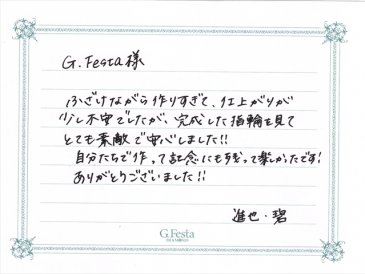 G.Festa様
ふざけながら作りすぎて、仕上がりが
少し不安でしたが、完成した指輪を見て
とても素敵で安心しました!!
自分たちで作って記念にもなって楽しかったです!
ありがとうございました!!
進也・碧
G.Festa